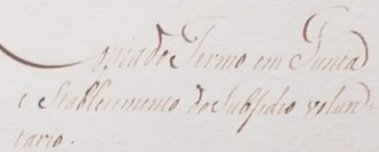 Copia do Termo em Junta
e Stablecimento do Subsidio volun-
tario.